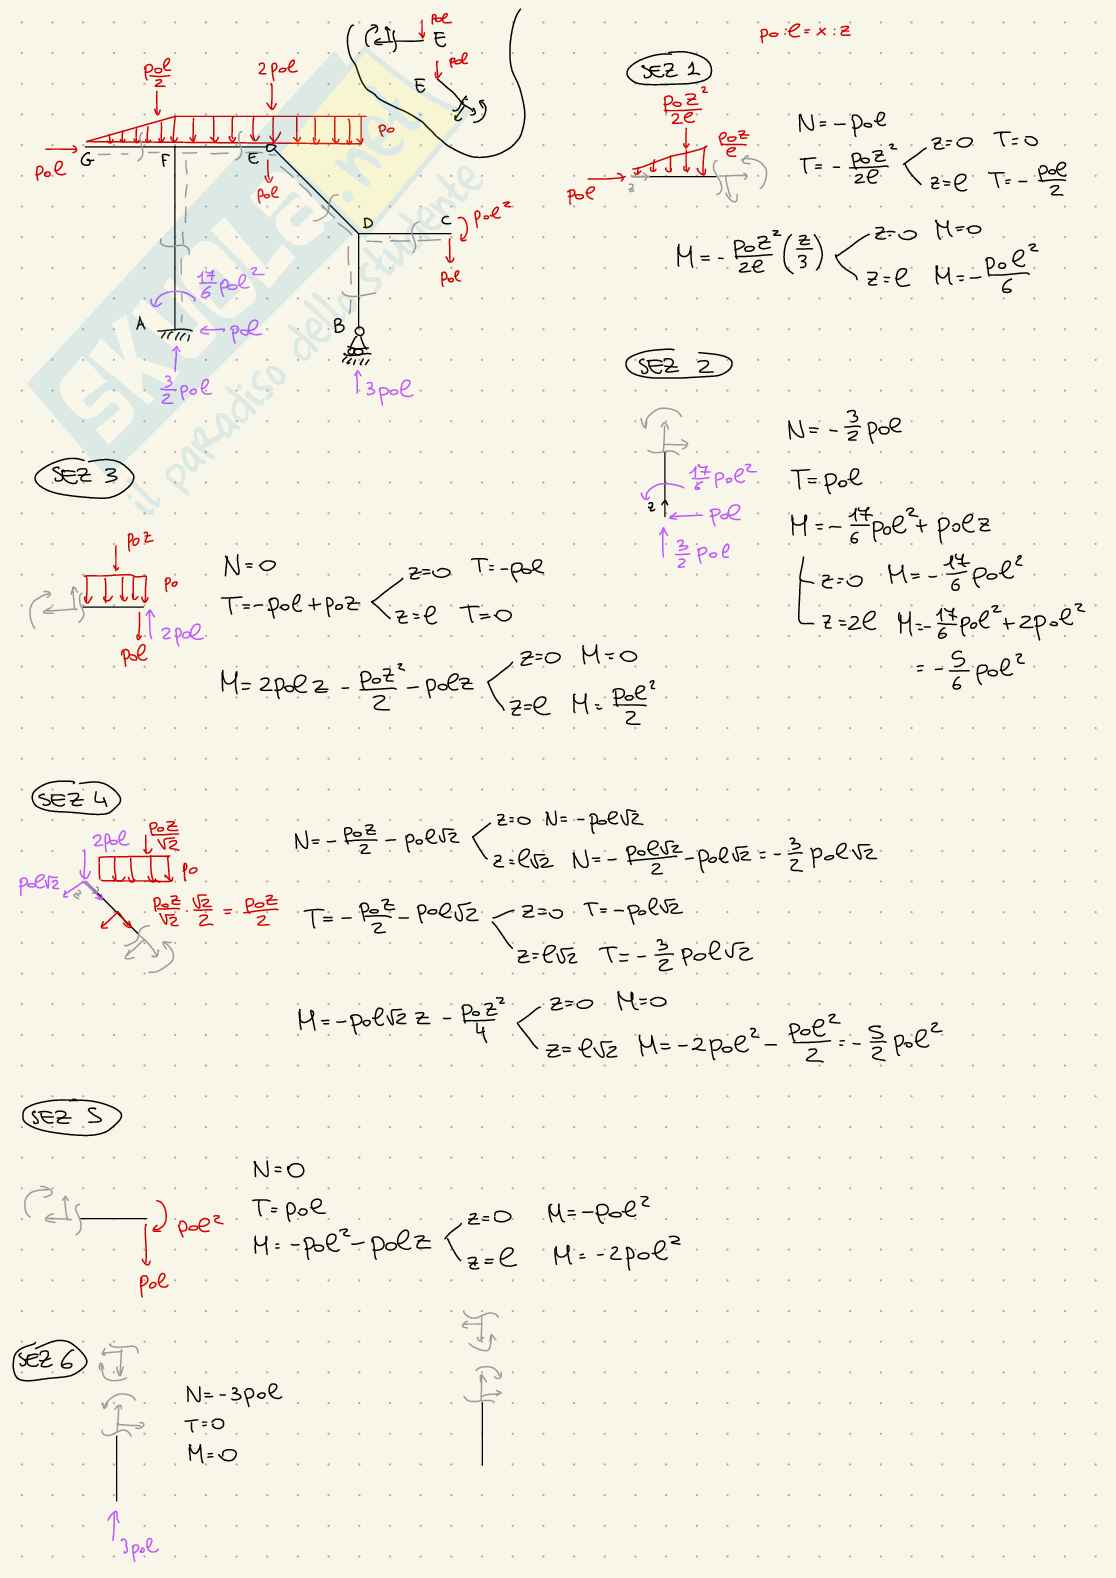 pol/2
2pol
pol
E
pol
E
p0
pol
G
F
E
pol
D
C
pol²
pol
17/6 pol²
A
pol
3/2 pol
B
3pol
SKUOLA.net
il paradiso dello studente
po:l=x:z
SEZ 1
poz²/2l
poz/l
pol
z
N=-pol
T=-poz²/2l
z=0 T=0
z=l T=-pol/2
M=-poz²/2l (z/3)
z=0 M=0
z=l M=-pol²/6
SEZ 2
17/6 pol²
z
pol
3/2 pol
N=-3/2 pol
T=pol
M=-17/6 pol²+polz
z=0 M=-17/6 pol²
z=2l M=-17/6 pol²+2pol²
=-5/6 pol²
SEZ 3
poz
po
2pol
pol
N=0
T=-pol+poz
z=0 T=-pol
z=l T=0
M=2polz-poz²/2-polz
z=0 M=0
z=l M=pol²/2
SEZ 4
2pol
poz/√2
po
pol√2
z
poz/√2·√2/2=poz/2
N=-poz/2-pol√2
z=0 N=-pol√2
z=l√2 N=-pol√2/2-pol√2=-3/2 pol√2
T=-poz/2-pol√2
z=0 T=-pol√2
z=l√2 T=-3/2 pol√2
M=-pol√2 z-poz²/4
z=0 M=0
z=l√2 M=-2pol²-pol²/2=-5/2 pol²
SEZ 5
pol²
pol
N=0
T=pol
M=-pol²-polz
z=0 M=-pol²
z=l M=-2pol²
SEZ 6
N=-3pol
T=0
M=0
3pol